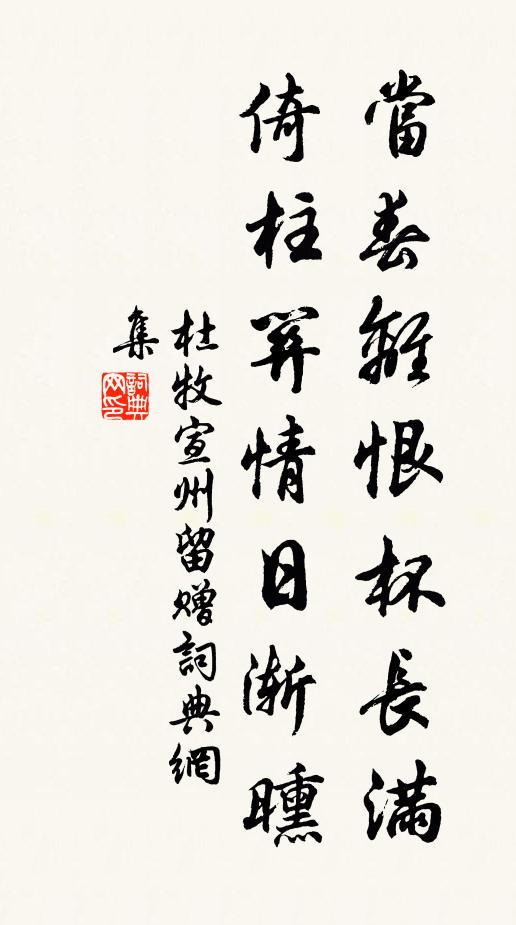 當春離恨杯長滿
倚柱關情日漸曛
杜牧宣州留贈詞典網
集
詞典
网印